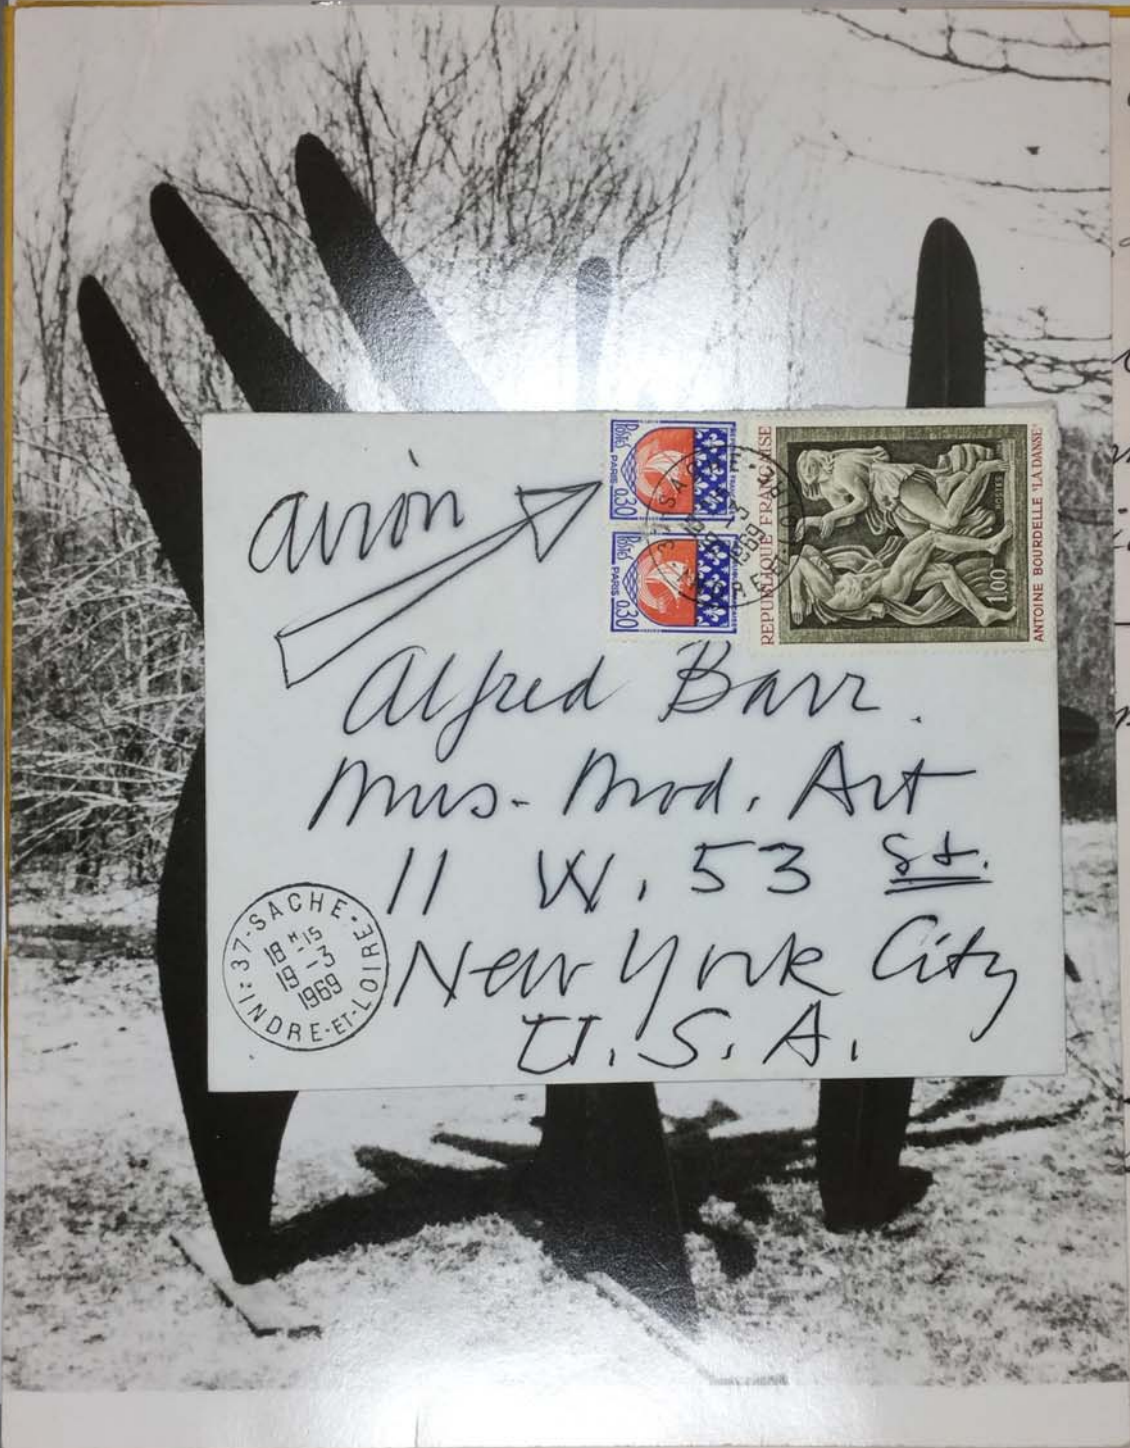 avion
Postes
PARIS 0,30
Postes
PARIS 0,30
REPUBLIQUE FRANÇAISE
POSTES
1,00
ANTOINE BOURDELLE "LA DANSE"
Alfred Barr.
Mus. Mod. Art
11 W. 53 St.
New York City
U.S.A.
37-SACHE
18 H 15
19-3
1969
INDRE-ET-LOIRE